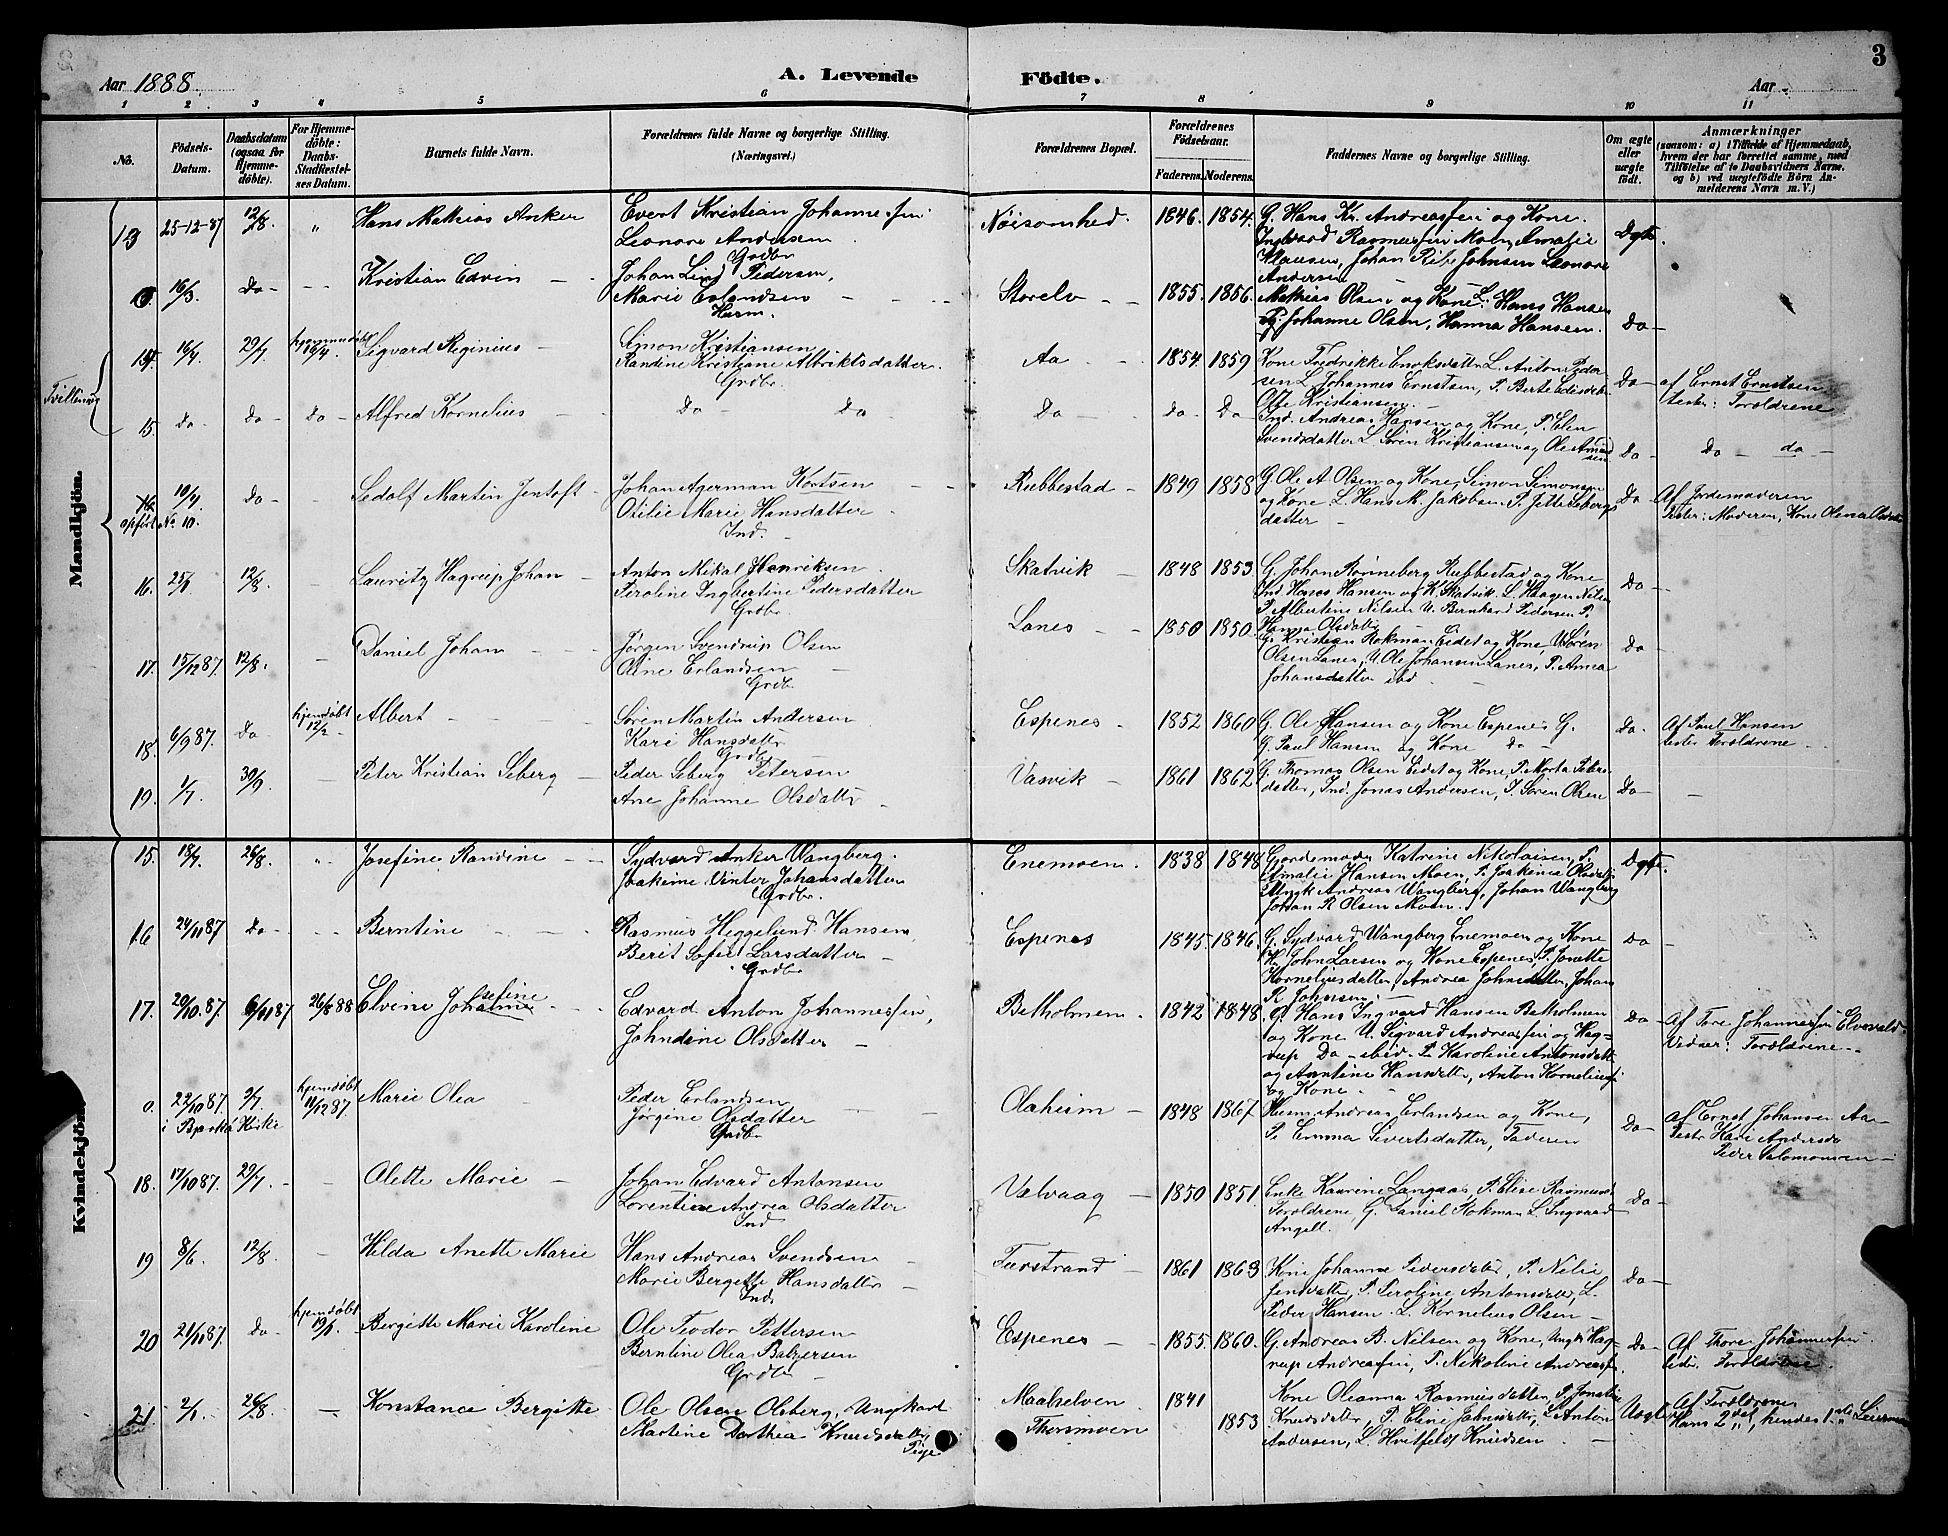 3
Aar 1888
A. Levende Födte.
Aar
1 2. 3 4 5 6 7 8 9 10 11
No.
Födsels-Datum.
Daabsdatum (ogsaa for Hjemme-döbte).
For Hjemme-döbte: Daabs-Stadfæstel-ses Datum.
Barnets fulde Navn.
Forældrenes fulde Navne og borgerlige Stilling. (Næringsvei.)
Forældrenes Bopæl.
Forældrenes Födselsaar.
Faderens. Moderens.
Faddernes Navne og borgerlige Stilling.
Om ægte eller uægte födt.
Anmærkninger
(saasom: a) i Tilfælde af Hjemmedaab, hvem der har forrettet samme, med Tilföielse af to Daabsvidners Navne. og b) ved uægtefödte Börn An-melderens Navn m. V.)
Mandkjön.
13 25-12-87 12/8 " Hans Mathias Anker
Evert Kristian Johannesen
Leonore Andersen
Grdbr
Nöisomhed. 1846. 1854.
G. Hans Kr. Andreassen og Kone.
Klausen, Johan
Andersen
Ægte.
16/3. Do - - - Kristian Edvin
Johan Lind Pedersen,
Marie Erlandsen
Husm.
Storelv 1855. 1856.
Mathias Olsen og Kone L. Hans Hansen
P. Johanne Olsen, Hanna Hansen.
Do -
Tvillinger
14. 16/4. 29/7 hjemmedöbt 16/4. Sigvard Reginius
Simon Kristiansen
Randine Kristiane Albriktsdatter.
Grdbr.
Aa 1854. 1859
Kone Fredrikke Enoksdatter L. Anton Peder
sen L. Johannes Ernstsen, P. Berte
Offe Kristiansen.
Do -
af Ernst Ernstsen
tester: Foroldrene
15. Do - Do - Do - Alfred Kornelius
Do Do
Do - Do - Do
Ind. Andreas Hansen og Kone, P. Elen
Svendsdatter L. Sören Kristiansen og Ole
Do - Do - do -
16. opfört No 10. 10/4 Do - - Sedolf Martin Jentoft
Johan Agerman Kortsen
Otilie Marie Hansdatter
Ind.
Rubbestad - 1849 1858
G. Ole A. Olsen og Kone, Simon Simonsen
og Kone L. Hans M. Jakobsen, P. Jette Seberg
datter -
Do
Af Jordemoderen
tester: Moderen, Kone Olena
16. 25/1 12/8. - Lauritz Hagrup Johan
Anton Mikal Henriksen
Peroline Ingbertine Pedersdatter
Grdbr
Skatvik - 1848 1853
G. Johan Rönneberg Rubbestad og Kone
Ind Hans Hansen og K. Skatvik. L. Haagen Nilsen
P. Albertine Nilsen U. Bernhard Pedersen P.
Hanna Olsdatter
Do -
17. 15/12 87. 12/8. - Daniel Johan
Jörgen Svendrup Olsen
Oline Erlandsen
Grdbr.
Lanes 1850 1850.
G. Kristian Rokman Eidet og Kone, U. Sören
Olsen Lanes, U. Ole Johansen Lanes, P. Anna
Johansdatter ibd -
Do -
18. 6/9 87. Do - hjemdöbt 12/2 - Albert
Sören Martin Andersen
Kari Hansdatter
Grdbr
Espenes - 1852 1860
G. Ole Hansen og Kone Espenes G.
G. Paul Hansen og Kone do -
Do -
Af Paul Hansen
tester Foroldrene
19. 1/7. 30/9 - Peter Kristian Seberg
Peder Seberg Petersen
Ane Johanne Olsdatter
Vasvik - 1861 1862
G. Thomas Olsen Eidet og Kone, P. Marta Peters
datter, Ind. Jonas Andersen, P. Sören Olsen
Do -
Kvindekjön.
15. 18/4. 26/8. " Josefine Randine
Sydvard Anker Wangberg.
Joakime Vinter Johansdatter
Grdbr.
Enemoen. 1838 1848
Gjordemoder Katrine Nikolaisen, P.
Amalie Hansen Moen, P. Joakime Olsdatter
Ungk Andreas Wangberg, Johan Wangberg
Johan R Olsen Moen.
Ægte.
16 24/11 87 Do - - - Berntine
Rasmus Heggelund Hansen,
Berit Sofie Larsdatter
Grdbr
Espenes 1845 1846.
G. Sydvard Wangberg Enemoen og Kone
H. John Larsen og Kone Espenes, P. Jonette
Korneliusdatter, Andrea Johnsdatter, Johan
R. Johnsen.
Do -
17. 20/10. 87. 6/11 87 26/8 88 Elvine Johanne Josefine
Edvard Anton Johannessen,
Johndine Olsdatter
Betholmen 1842 1848.
G. Hans Ingvard Hansen Betholmen
og Kone U. Sigvard Andreassen og Hag-
rup Do - ibid. P. Karoline Antonsdatter
og Antine Hansdatter, Anton Korneliussen
og Kone. -
Do -
Af Tore Johannessen Elvevold
Vidner: Foroldrene. -
0. 22/10 87. 2/7. hjemdöbt 11/12 87. Marie Olea
i Bjarkö Kirke
Peder Erlandsen
Jörgine Olsdatter
Grdbr
Olaheim - 1848 1867
Husm Andreas Erlandsen og Kone,
P. Emma Sivertsdatter, Faderen
Do -
af Ernst Johansen Aa -
Testr Kari Andersdr
Peder Salomonsen -
18. 17/10 87. 29/7. - - Olette Marie
Johan Edvard Antonsen
Lorentine Andrea Olsdatter
Ind
Valvaag - 1850 1851.
Enke Kaurine Langaas, P. Elise Rasmusd
Foroldrene, G. Daniel Rokman L. Ingvard
Angell.
Do -
19 8/6 12/8 - Hilda Anette Marie
Hans Andreas Svendsen
Marie Bergette Hansdatter
Ind.
Furstrand - 1861 1863
Kone Johanna Pedersdatter, P. Nilie
Jensdatter, P. Peroline Antonsdatter, L.
Peder Hansen. L. Kornelius Olsen -
Do -
20 21/11 87. Do - hjemdöbt 19/1. Bergitte Marie Karoline
Ole Teodor Pettersen
Berntine Olea Balzersen
Grdbr -
Espenes - 1855 1860.
G. Andreas B. Nilsen og Kone, Ungk Hag-
rup Andreassen, P. Nikoline Andreassen
Do -
Af Thore Johannessen
Foroldrene.
21. 2/1. 26/8. - Konstance Bergitte
Ole Olsen Olsberg, Ungkarl
Martine Dorthea Knudsdatter
Pige
Maalselven
Thorsmoen
1841 1853
Kone Oleanna Rasmusdatter, P. Jonetine
Knudsdatter, P. Eline Johnsdatter, L. Anton
Andersen, L. Hvitfeldt Knudsen -
Uægte
Af Foroldrene
Hans 2det, hendes 1ste Leiermaal